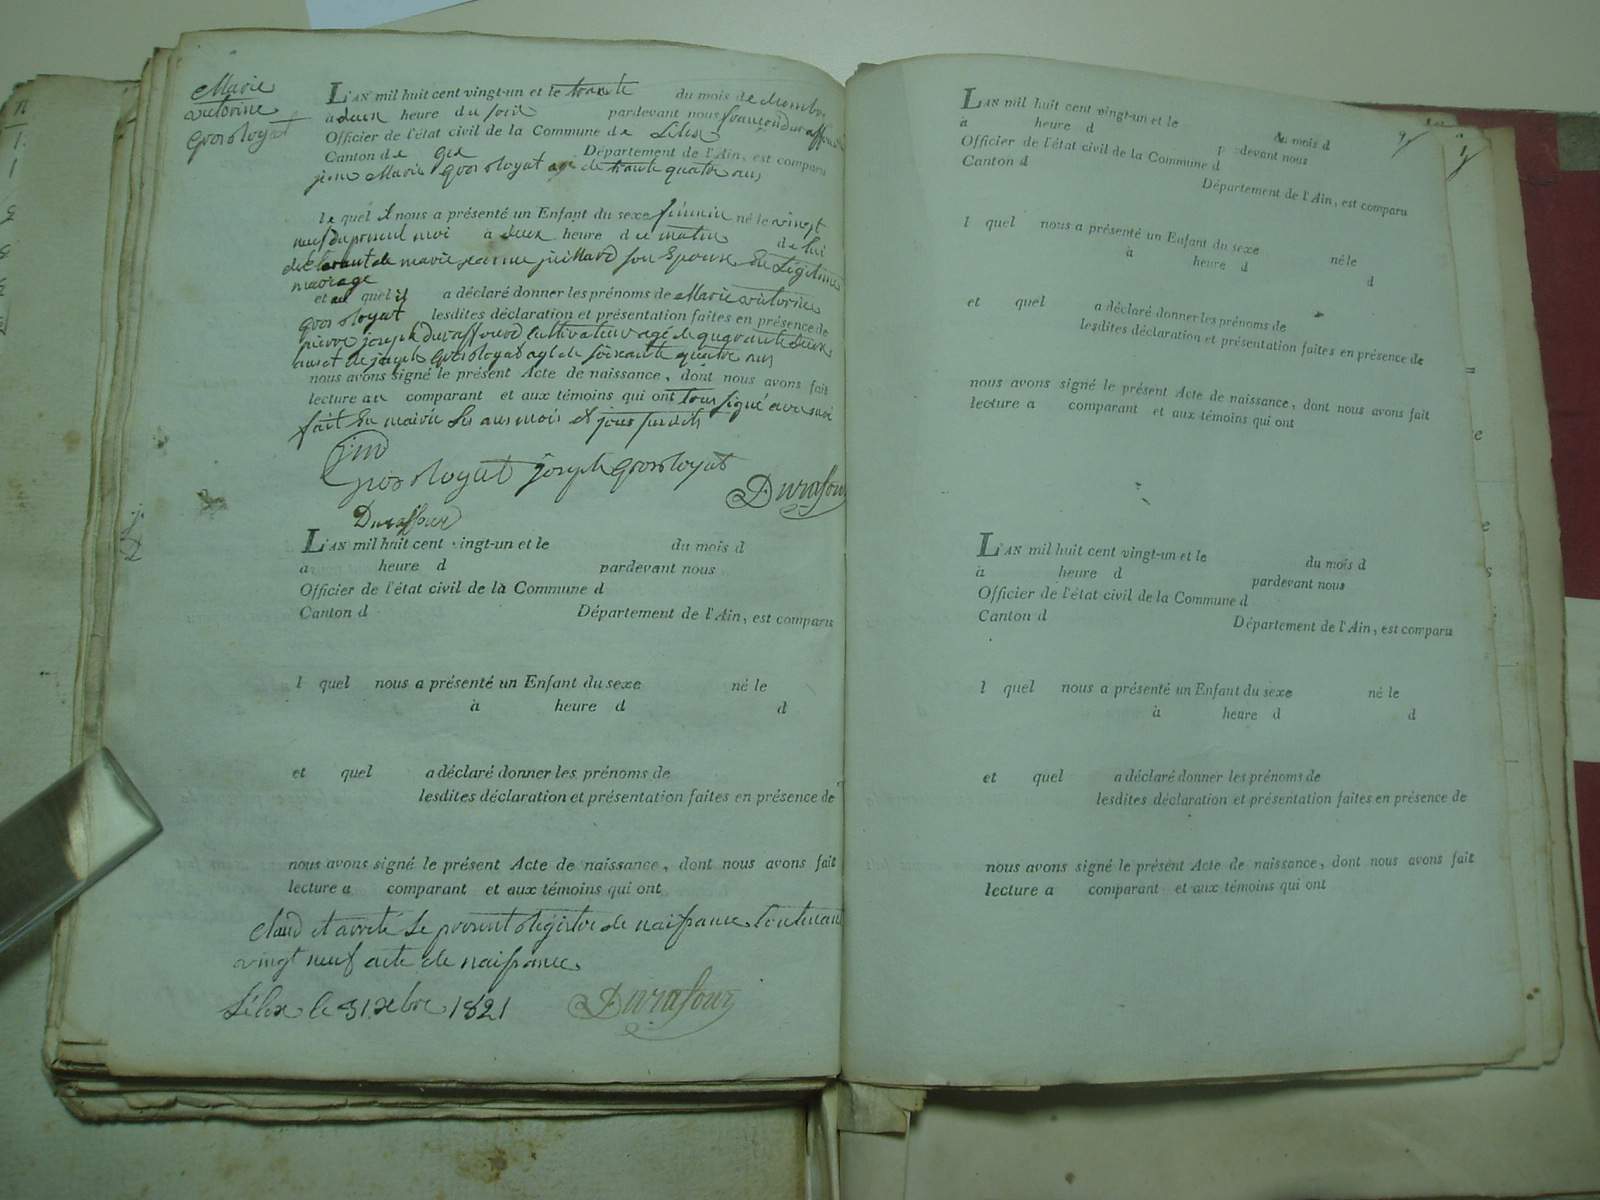 Marie
victorine
grosgojat
L'AN mil huit cent vingt-un et le trante du mois de décembre
à deux heure du soir pardevant nous françois duraffour
Officier de l'état civil de la Commune de Lélex
Canton de Gex Département de l'Ain, est comparu
Marie âgé de trante quatre ans
le quel il nous a présenté un Enfant du sexe féminin né le vingt
neuf du présent moi à deux heure de matin de lui
déclarant de marie jeanne juillard son Epouse En Légitime
mariage
et au quel il a déclaré donner les prénoms de Marie victorine
lesdites déclaration et présentation faites en présence de
pierre joseph duraffourd cultivateur agé de quarante deux
ans et de joseph agé de soixante quatre ans
nous avons signé le présent Acte de naissance, dont nous avons fait
lecture au comparant et aux témoins qui ont tous signé avec moi
fait En mairie Les ans mois et jour susdits
joseph
Durafour
Duraffour
L'AN mil huit cent vingt-un et le du mois d
à heure d pardevant nous
Officier de l'état civil de la Commune d
Canton d Département de l'Ain, est comparu
l quel nous a présenté un Enfant du sexe né le
à heure d d
et quel a déclaré donner les prénoms de
lesdites déclaration et présentation faites en présence de
nous avons signé le présent Acte de naissance, dont nous avons fait
lecture a comparant et aux témoins qui ont
Claud et arreté le present Régistre de naissance Contenant
vingt neuf acte de naissance
Lélex le 31 xbre 1821 Durafour
L'AN mil huit cent vingt-un et le du mois d
à heure d pardevant nous
Officier de l'état civil de la Commune d
Canton d
Département de l'Ain, est comparu
l quel nous a présenté un Enfant du sexe né le
à heure d d
et quel a déclaré donner les prénoms de
lesdites déclaration et présentation faites en présence de
nous avons signé le présent Acte de naissance, dont nous avons fait
lecture a comparant et aux témoins qui ont
L'AN mil huit cent vingt-un et le du mois d
à heure d pardevant nous
Officier de l'état civil de la Commune d
Canton d Département de l'Ain, est comparu
l quel nous a présenté un Enfant du sexe né le
à heure d d
et quel a déclaré donner les prénoms de
lesdites déclaration et présentation faites en présence de
nous avons signé le présent Acte de naissance, dont nous avons fait
lecture a comparant et aux témoins qui ont